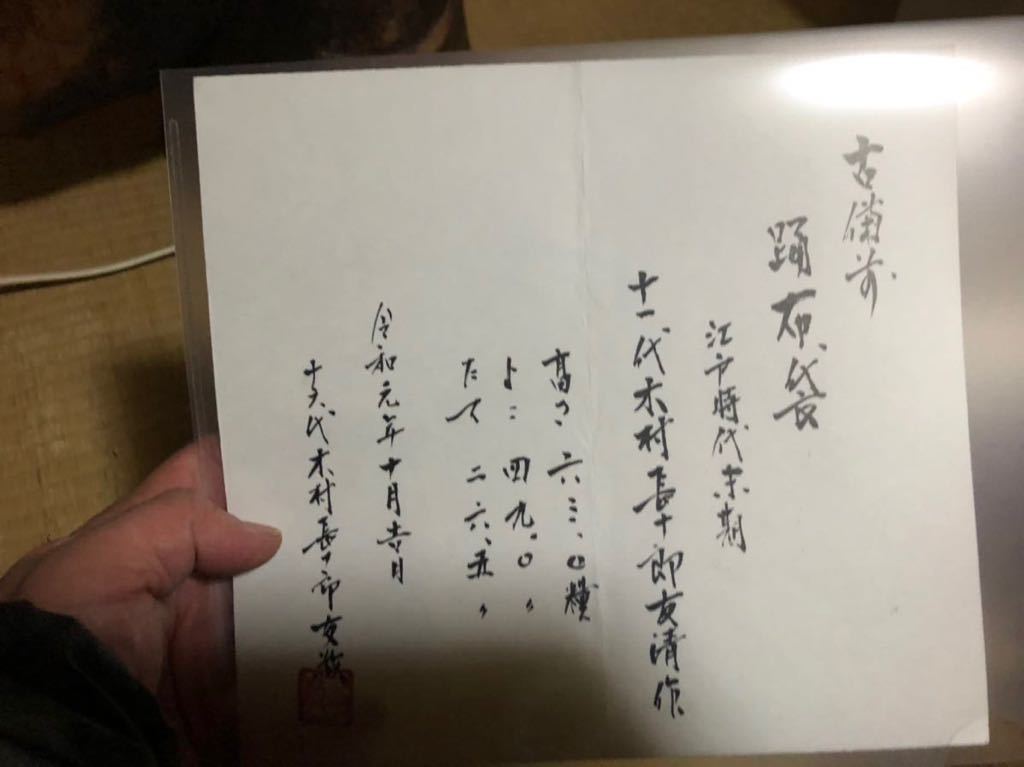 古備前
踊布袋
江戸時代末期
十一代木村長十郎友清作
高さ 六三、〇糎
よこ 四九、〇〃
たて 二六、五〃
令和元年十月吉日
十六代木村長十郎友敬